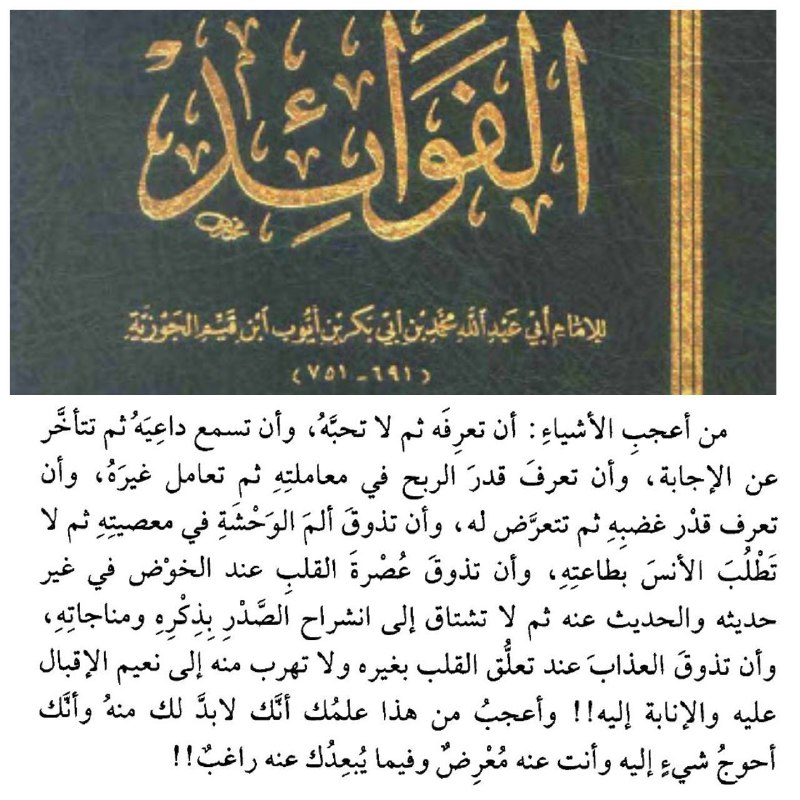 الفَوَائِد
للإمَام أبي عَبْدِ اللّه مُحَمَّد بْن أبي بَكر بْن أيُّوب ابْن قَيِّم الجَوْزِيَّةِ
(٦٩١ - ٧٥١)
من أعجبِ الأشياءِ: أن تعرِفَه ثم لا تحبَّهُ، وأن تسمع داعِيَهُ ثم تتأخَّر
عن الإجابة، وأن تعرفَ قدرَ الربح في معاملتِهِ ثم تعامل غيرَهُ، وأن
تعرف قدْر غضبِهِ ثم تتعرَّض له، وأن تذوقَ ألمَ الوَحْشَةِ في معصيتِهِ ثم لا
تَطْلُبَ الأنسَ بطاعتِهِ، وأن تذوقَ عُصْرةَ القلبِ عند الخوْض في غير
حديثه والحديث عنه ثم لا تشتاق إلى انشراح الصَّدْرِ بِذِكْرِهِ ومناجاتِهِ،
وأن تذوقَ العذابَ عند تعلُّق القلب بغيره ولا تهرب منه إلى نعيم الإقبال
عليه والإنابة إليه!! وأعجبُ من هذا علمُك أنَّك لابدَّ لك منهُ وأنَّك
أحوجُ شيءٍ إليه وأنت عنه مُعْرِضٌ وفيما يُبعِدُك عنه راغبٌ!!